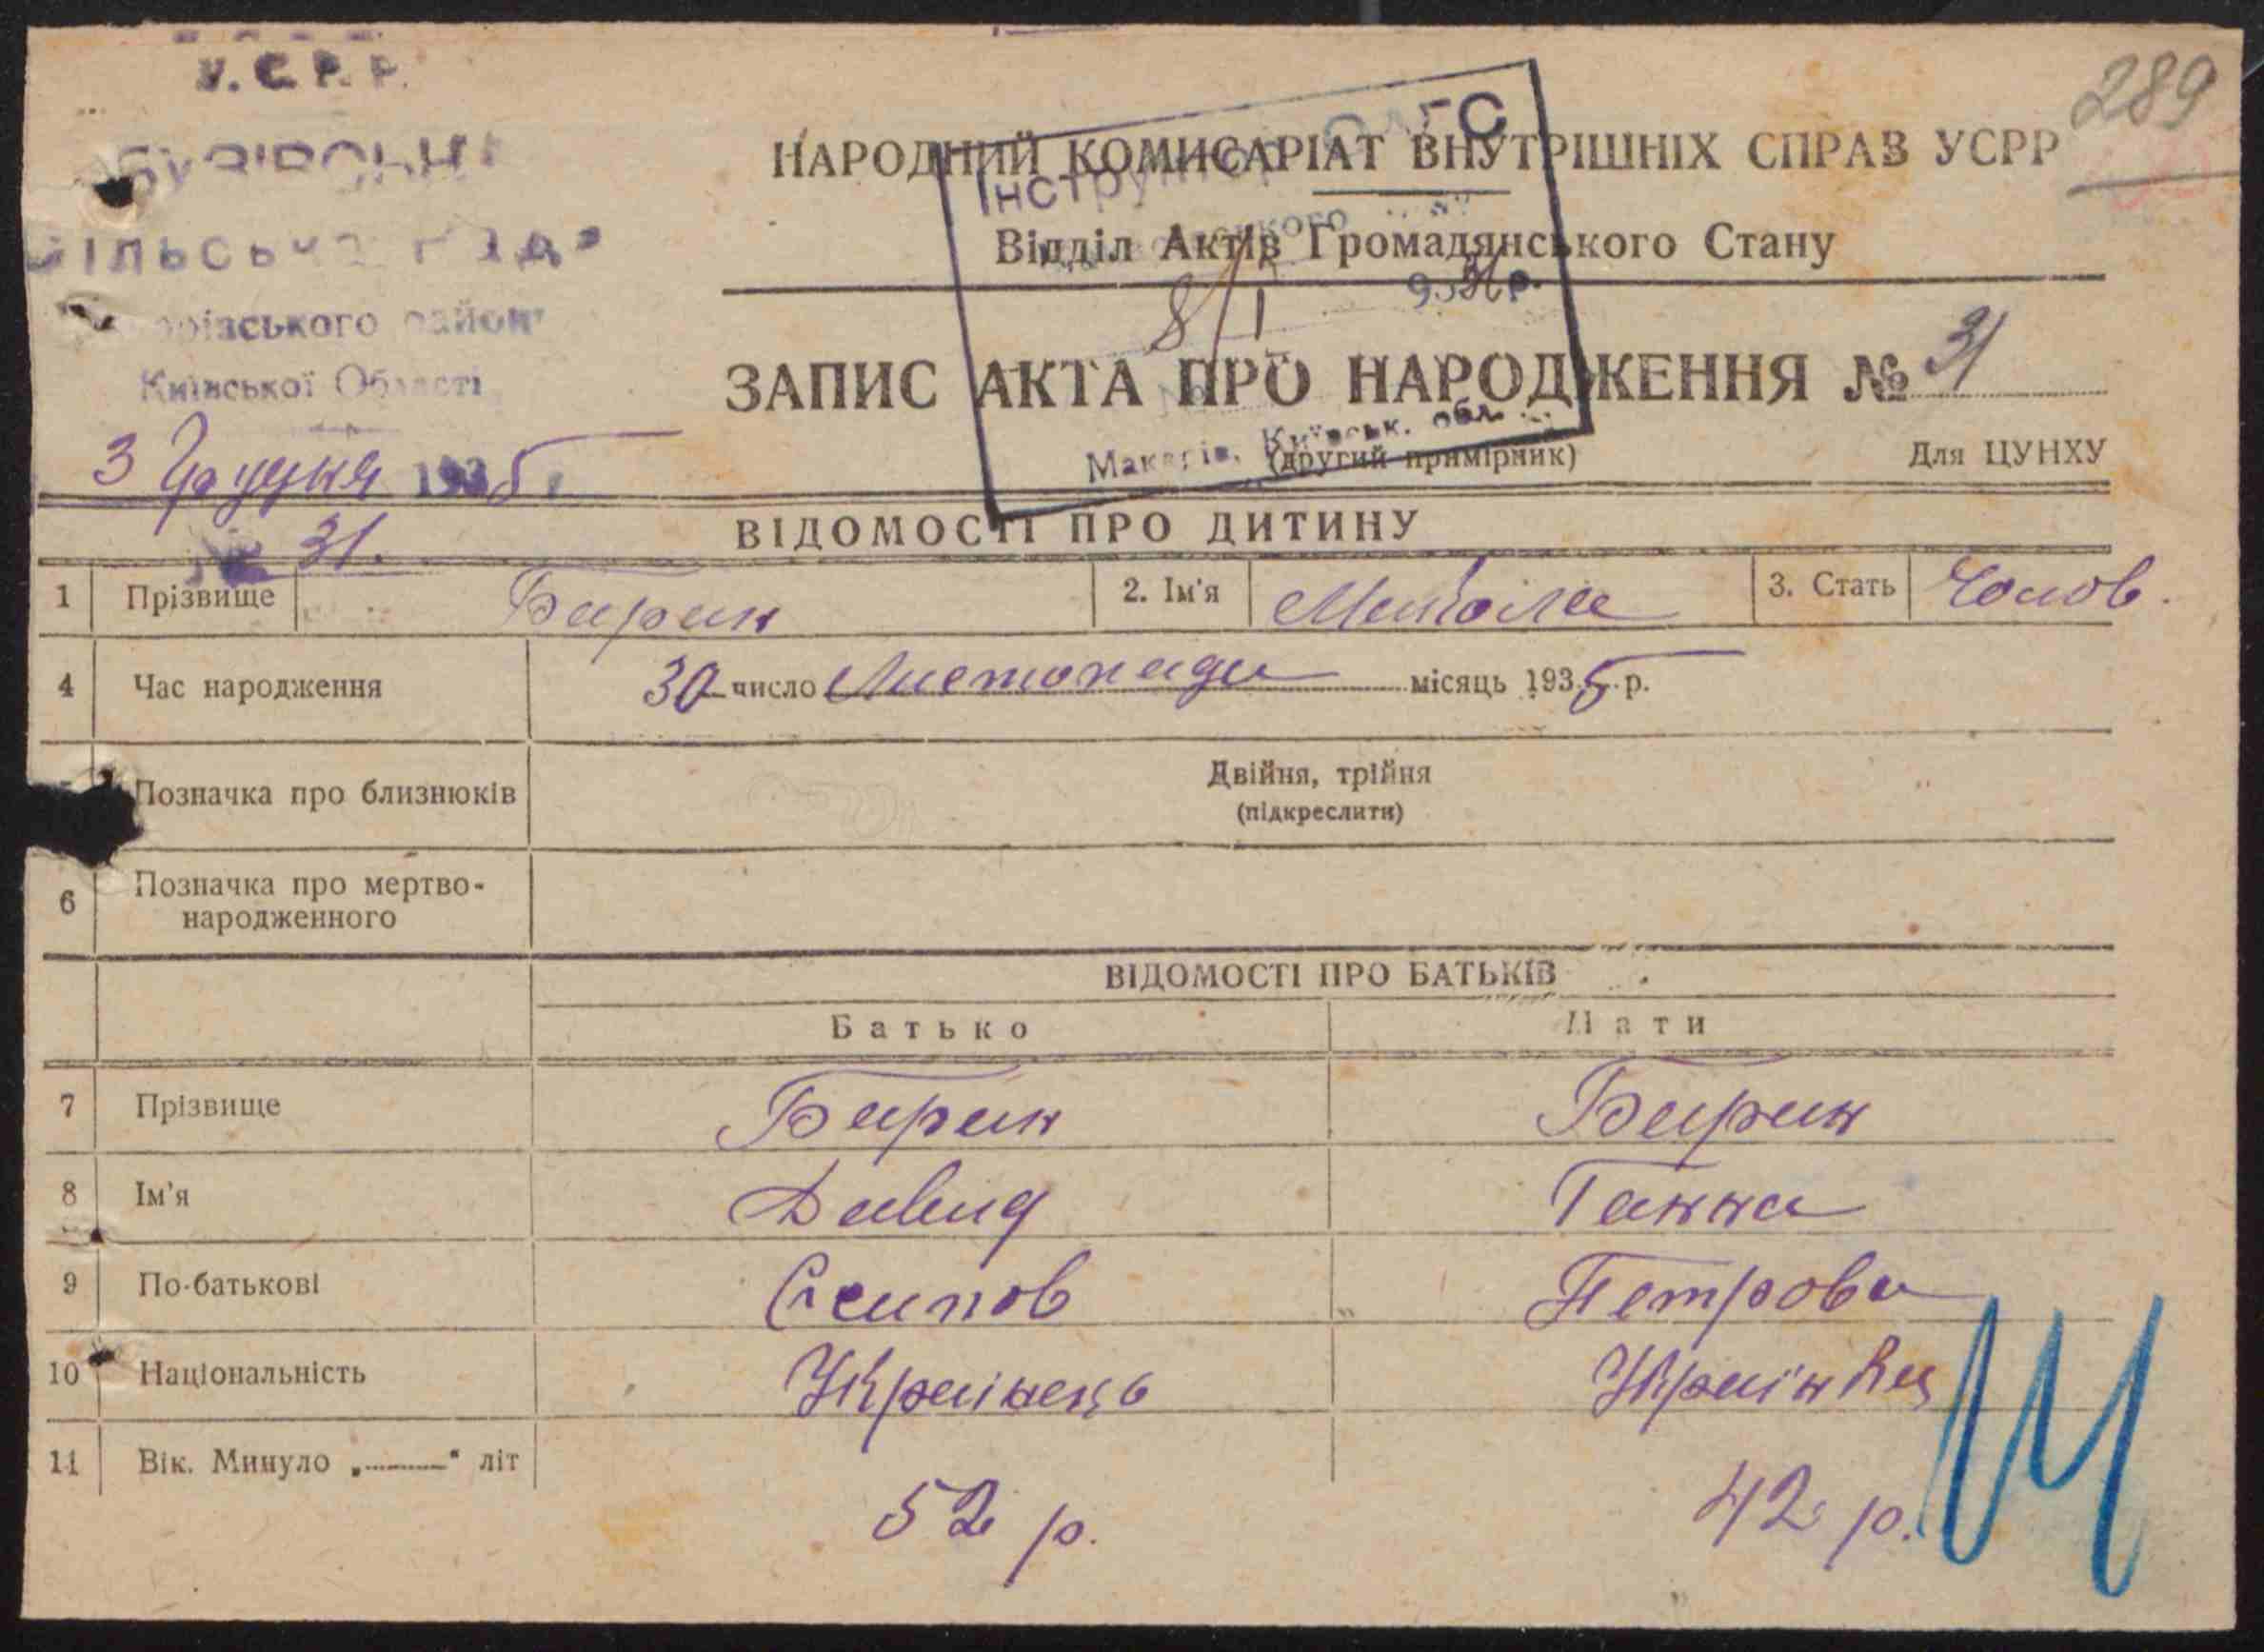 У.С.Р.Р.
289
НАРОДНИЙ КОМИСАРІАТ ВНУТРІШНІХ СПРАВ УСРР
Відділ Актів Громадянського Стану
Київської Області
8/I
ЗАПИС АКТА ПРО НАРОДЖЕННЯ № 31
Макарів, Київськ. обл.
(другий примірник)
Для ЦУНХУ
3 Грудня 1935
№ 31.
ВІДОМОСТІ ПРО ДИТИНУ
1 Прізвище Бирин 2. Ім'я Микола 3. Стать Чолов.
4 Час народження 30 число Листопада місяць 1935 р.
Позначка про близнюків Двійня, трійня
(підкреслити)
6 Позначка про мертво-
народженного
ВІДОМОСТІ ПРО БАТЬКІВ
Батько Мати
7 Прізвище Бирин Бирин
8 Ім'я Давид Ганна
9 По-батькові Осипов Петрова
10 Національність Українець Українка
11 Вік. Минуло „ “ літ 52 р. 42 р.